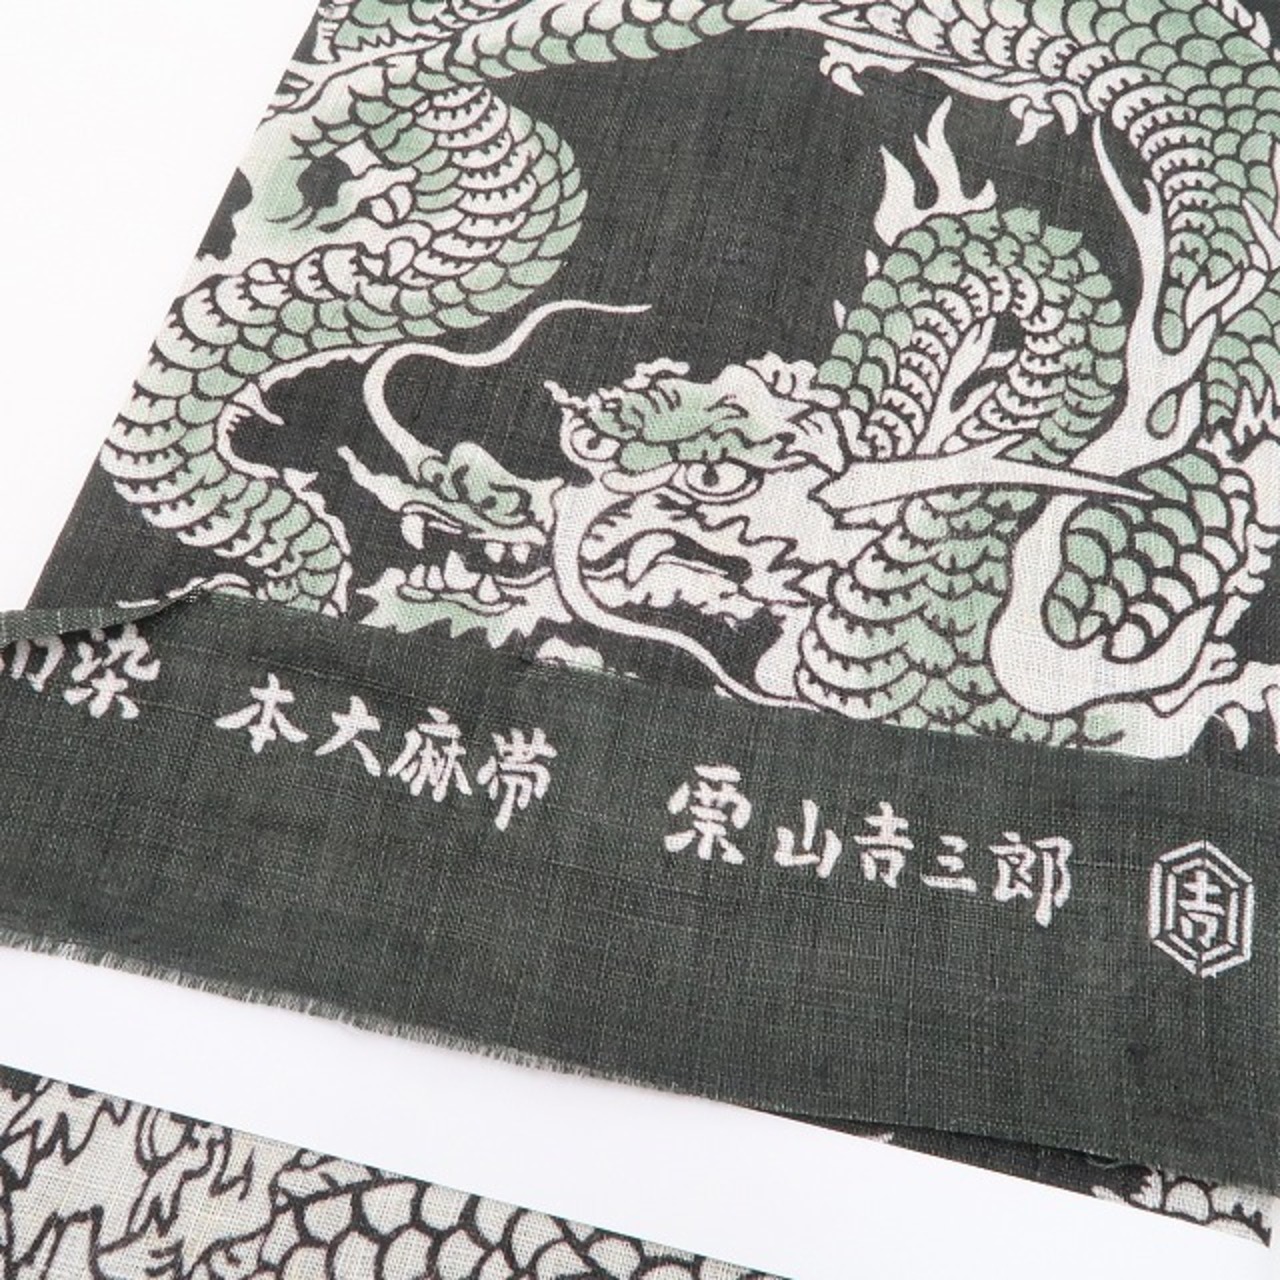 染　本大麻帯　栗山吉三郎　吉